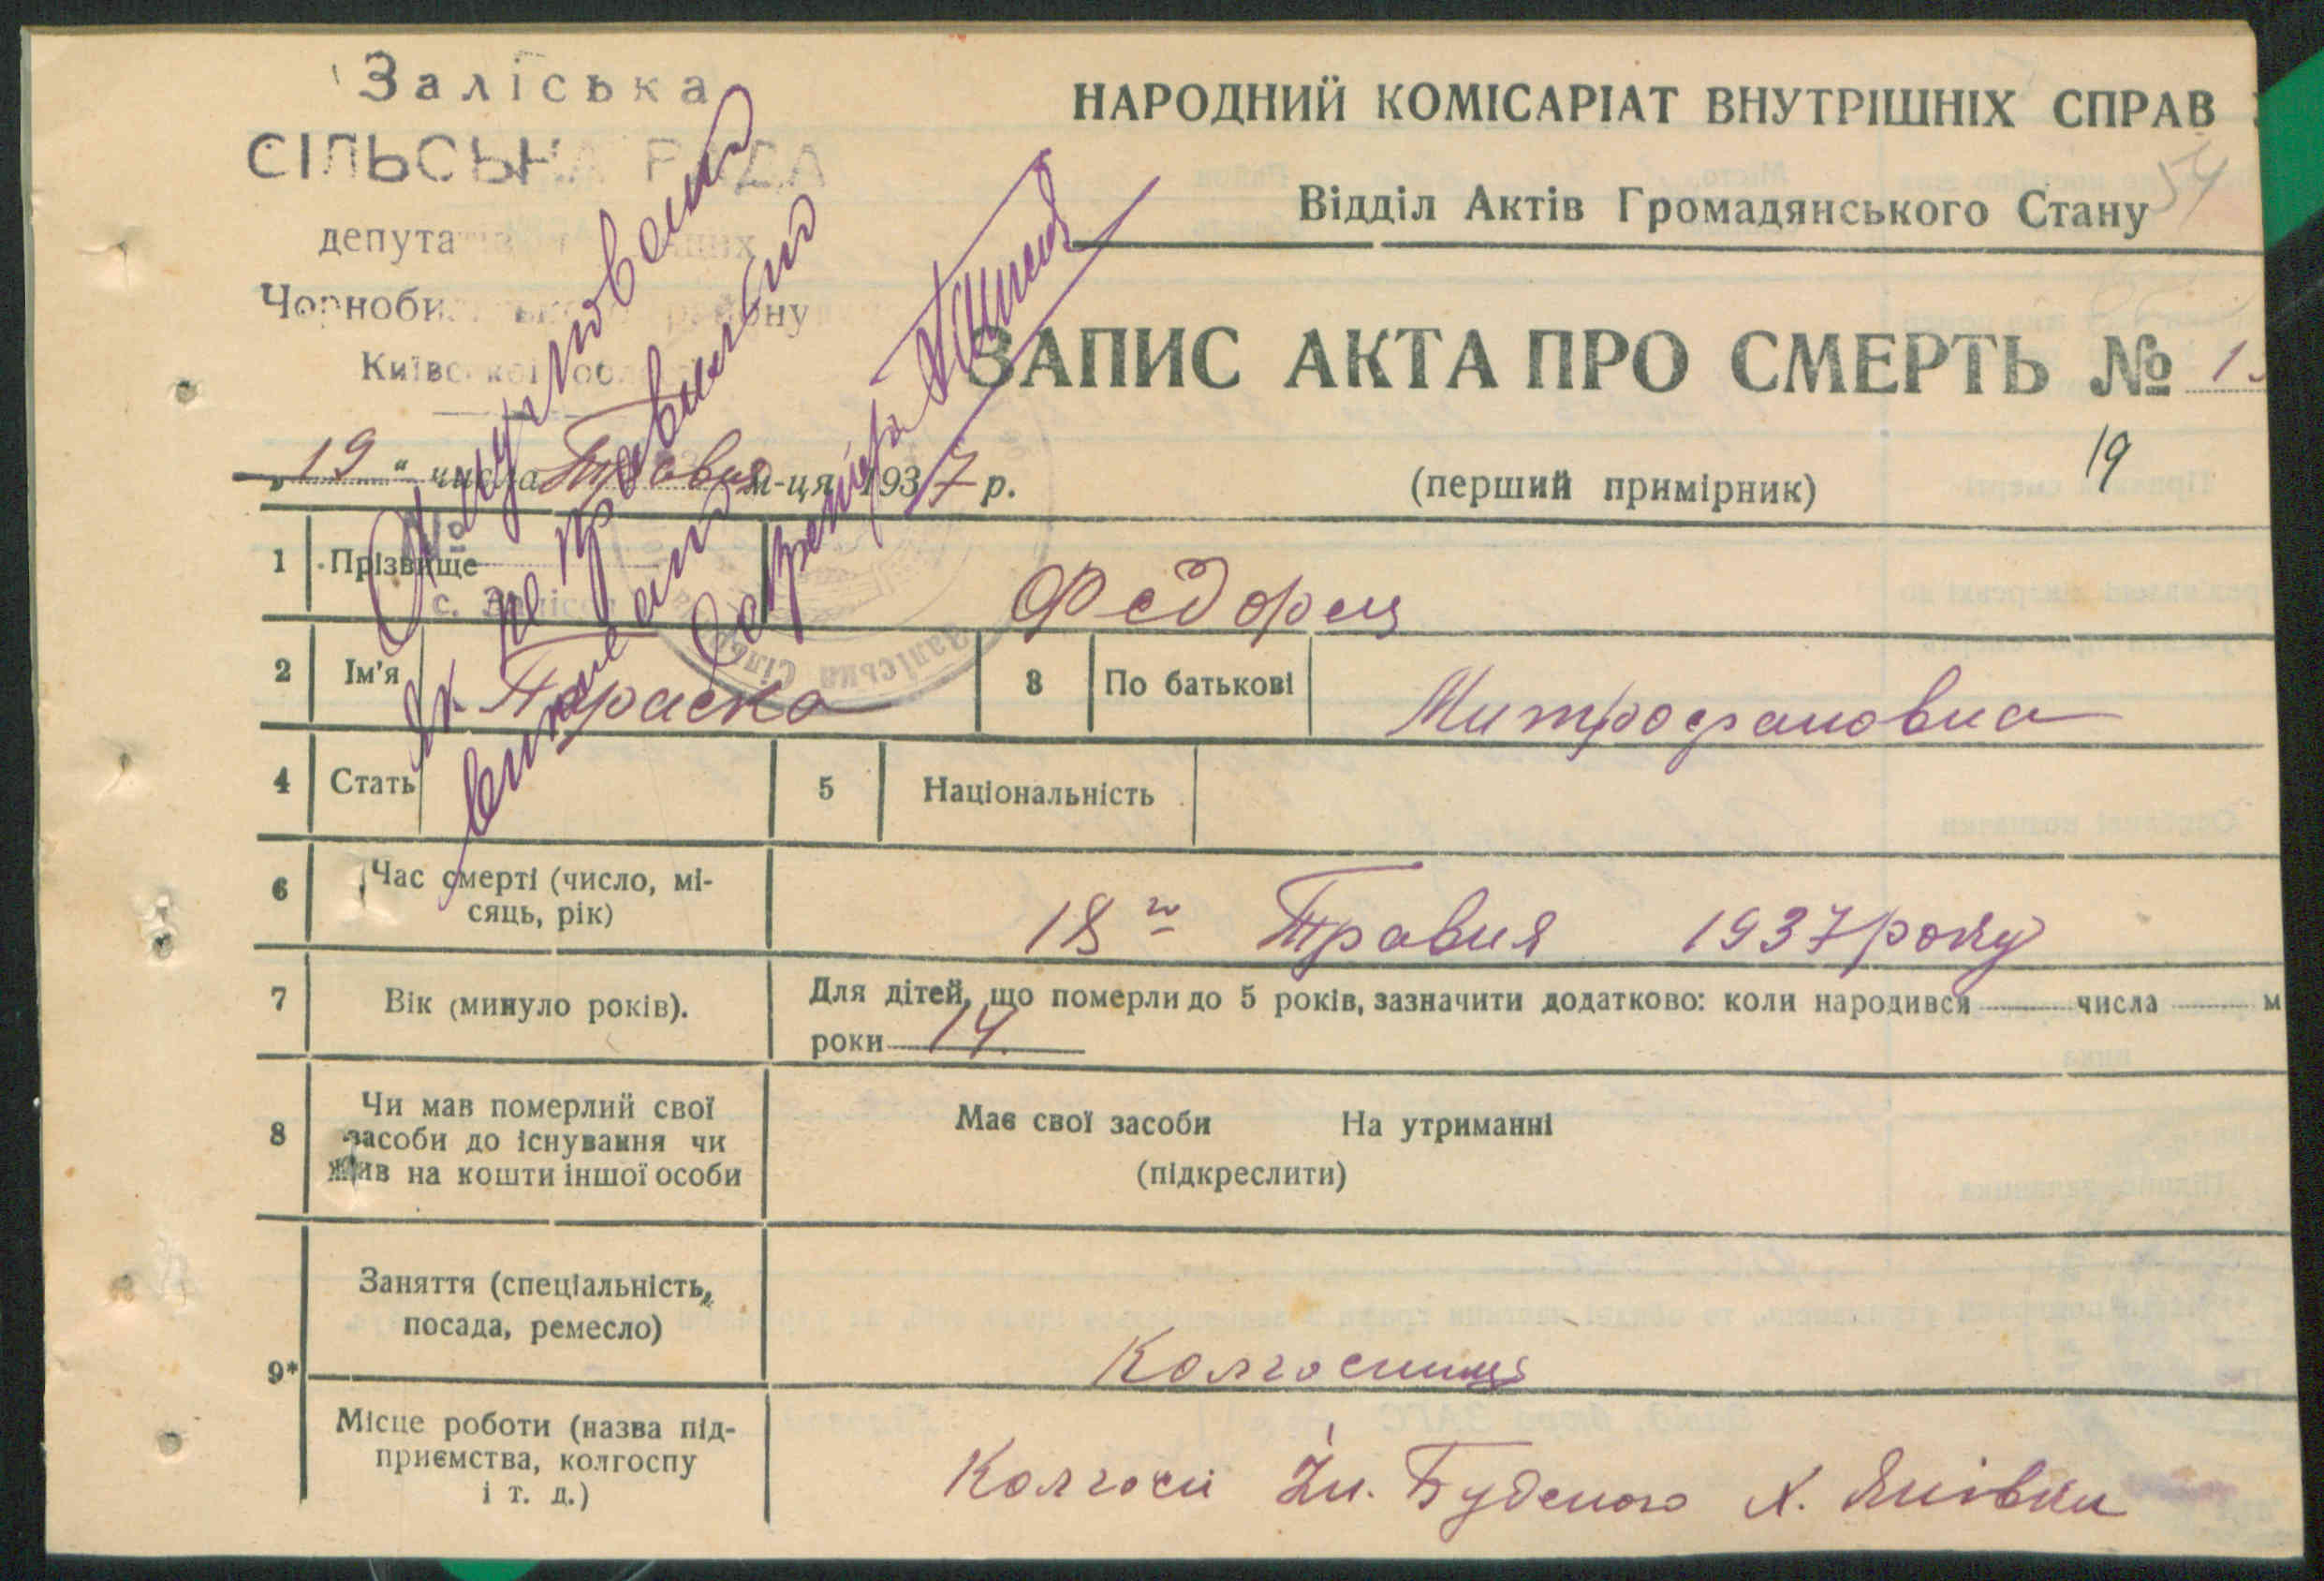 Заліська
СІЛЬСЬКА РАДА
депутатів
Чорнобильського району
Київської обл.
№
с. Залісся
НАРОДНИЙ КОМІСАРІАТ ВНУТРІШНІХ СПРАВ
54
Відділ Актів Громадянського Стану
ЗАПИС АКТА ПРО СМЕРТЬ №
19
(перший примірник)
„19" числа Травня м-ця 1937 р.
Анульовано
як не правильно
виписано
Секретар
1 Прізвище Федорец
2 Ім'я Параска 3 По батькові Митрофановна
4 Стать 5 Національність
Заліська сільська
6 Час смерті (число, мі-
сяць, рік)
18го Травня 1937 року
7 Вік (минуло років).
Для дітей, що померли до 5 років, зазначити додатково: коли народився числа м
роки 14
8 Чи мав померлий свої
засоби до існування чи
жив на кошти іншої особи
Має свої засоби На утриманні
(підкреслити)
9* Заняття (спеціальність,
посада, ремесло)
Колгоспниця
Місце роботи (назва під-
приємства, колгоспу
і т. д.)
Колгосп Ім. Буденого х. Янівки